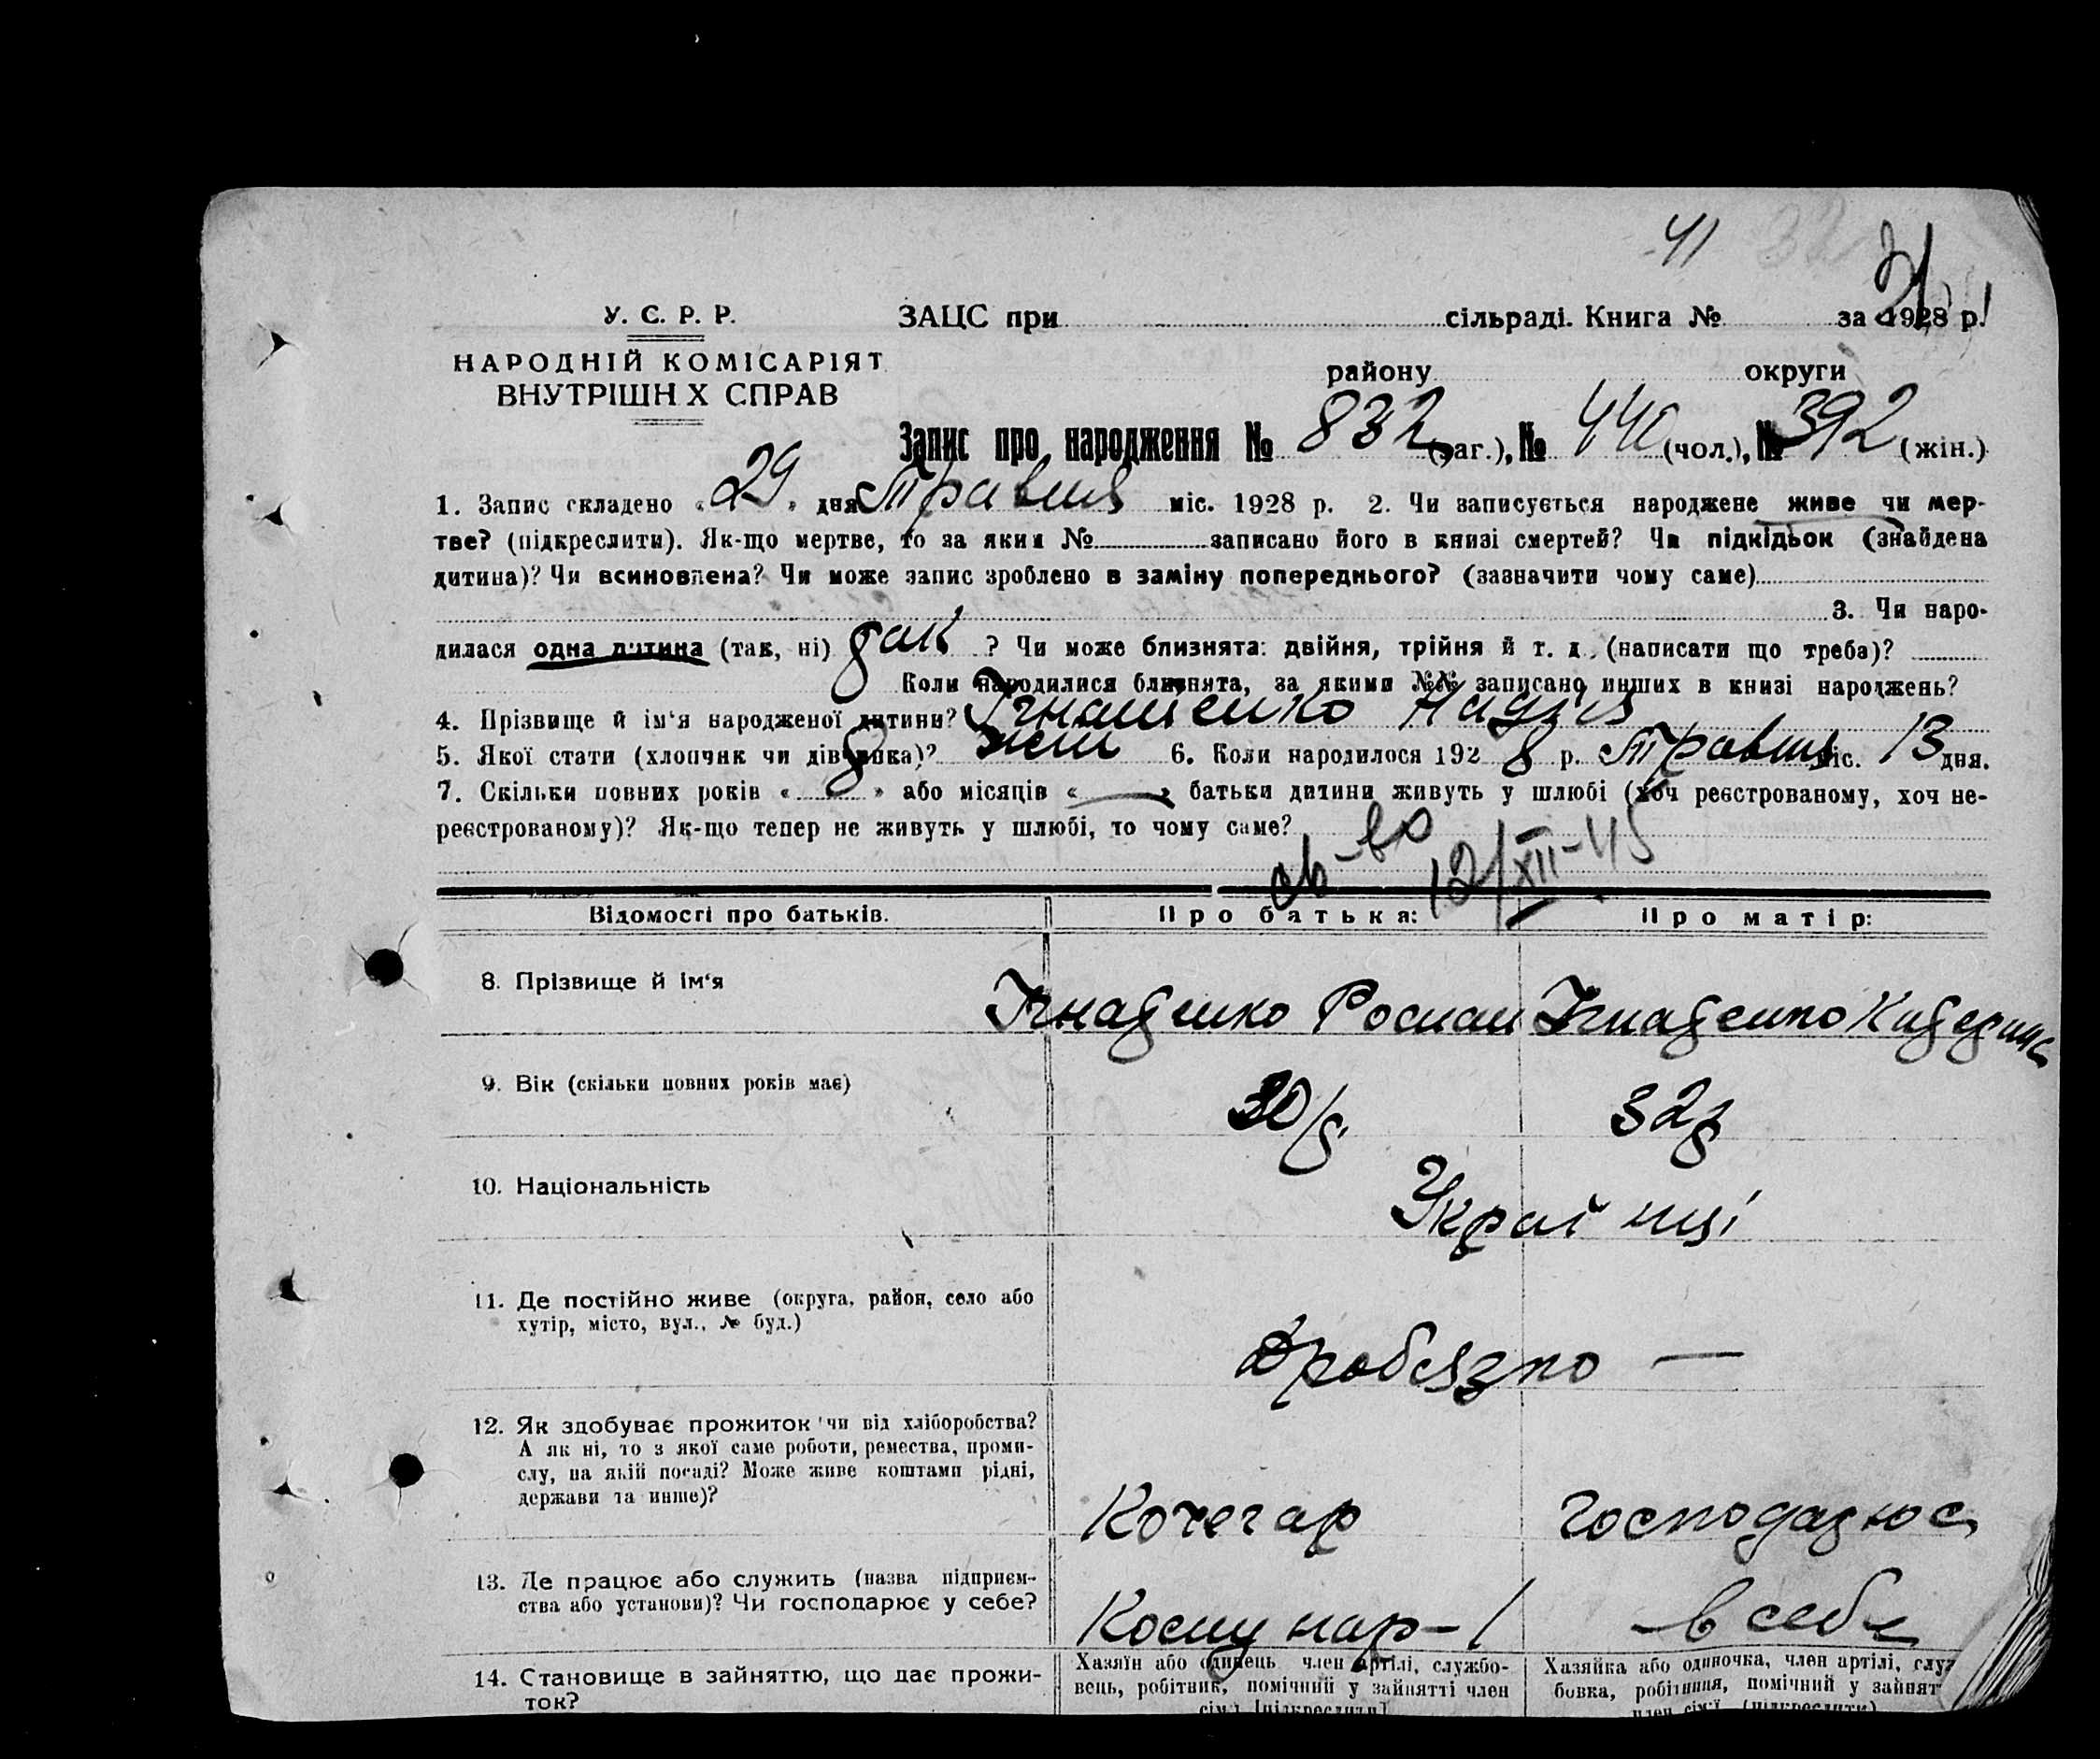 41 32 31
У. С. Р. Р. ЗАЦС при сільраді. Книга № за 1928 р.
НАРОДНІЙ КОМІСАРІЯТ району округи
ВНУТРІШН Х СПРАВ
Запис про народження № 832 (заг.), № 440 (чол.), № 392 (жін.)
1. Запис складено « 29 » дня Травня міс. 1928 р. 2. Чи записується народжене живе чи мер-
тве? (підкреслити). Як-що мертве, то за яким № записано його в книзі смертей? Чи підкідьок (знайдена
дитина)? Чи всиновлена? Чи може запис зроблено в заміну попереднього? (зазначити чому саме)
3. Чи наро-
дилася одна дитина (так, ні) так ? Чи може близнята: двійня, трійня й т. д. (написати що треба)?
Коли народилися близнята, за якими №№ записано инших в книзі народжень?
4. Прізвище й ім'я народженої дитини? Ігнатенко Надія
5. Якої стати (хлопчик чи дівчинка)? жін 6. Коли народилося 192 8 р. Травня міс. 13 дня.
7. Скільки повних років « 8 » або місяців « — » батьки дитини живуть у шлюбі (хоч реєстрованому, хоч не-
реєстрованому)? Як-що тепер не живуть у шлюбі, то чому саме?
св-во 12/XII-45
Відомості про батьків. Про батька: Про матір:
8. Прізвище й ім'я Ігнатенко Роман Ігнатенко Катерина
9. Вік (скільки повних років має) 30/р 32р
10. Національність Українці
11. Де постійно живе (округа, район, село або
хутір, місто, вул., № буд.)
—
12. Як здобуває прожиток чи від хліборобства?
А як ні, то з якої саме роботи, ремества, проми-
слу, на якій посаді? Може живе коштами рідні,
держави та инше)?
Кочегар
13. Де працює або служить (назва підприєм-
ства або установи)? Чи господарює у себе?
Комунар-1 в себе
14. Становище в зайняттю, що дає прожи-
ток?
Хазяїн або одинець член артілі, службо-
вець, робітник, помічний у зайнятті член
сім'ї [підкреслити]
Хазяйка або одиночка, член артілі, служ
бовка, робітниця, помічний у зайнят
член сім'ї (підкреслити)